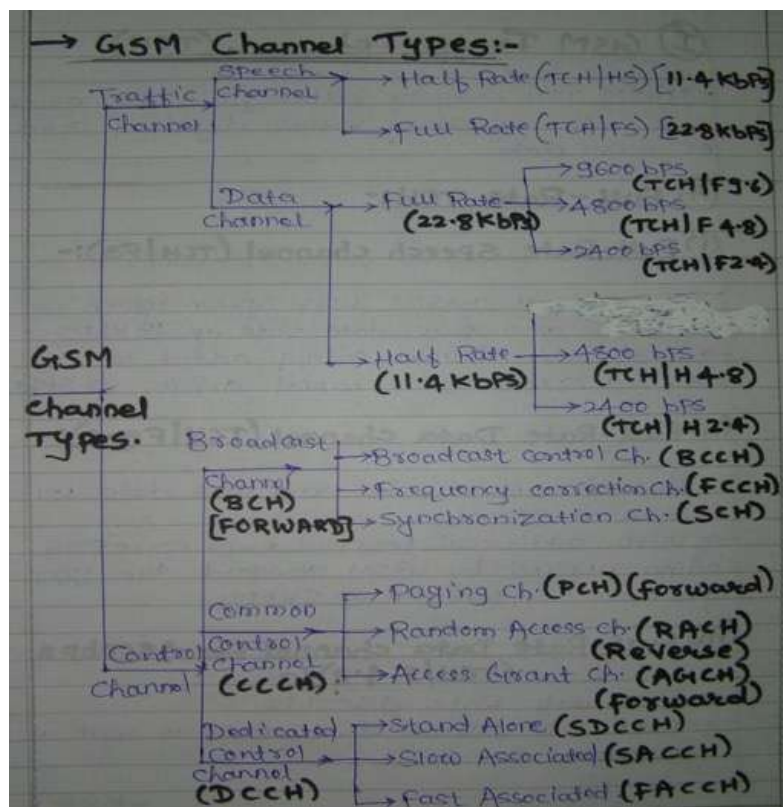 → GSM Channel Types:-
Traffic Channel
Speech Channel
→ Half Rate (TCH/HS) [11.4 Kbps]
→ Full Rate (TCH/FS) [22.8 Kbps]
Data Channel
→ Full Rate (22.8 Kbps)
→ 9600 bps (TCH/F9.6)
→ 4800 bps (TCH/F 4.8)
→ 2400 bps (TCH/F2.4)
→ Half Rate (11.4 Kbps)
→ 4800 bps (TCH/H 4.8)
→ 2400 bps (TCH/H2.4)
GSM
Channel
Types.
Control Channel
Broadcast Channel (BCH) [FORWARD]
→ Broadcast control Ch. (BCCH)
→ Frequency correction Ch. (FCCH)
→ Synchronization Ch. (SCH)
Common Control Channel (CCCH)
→ Paging Ch. (PCH) (Forward)
→ Random Access Ch. (RACH) (Reverse)
→ Access Grant Ch. (AGCH) (Forward)
Dedicated Control Channel (DCCH)
→ Stand Alone (SDCCH)
→ Slow Associated (SACCH)
→ Fast Associated (FACCH)